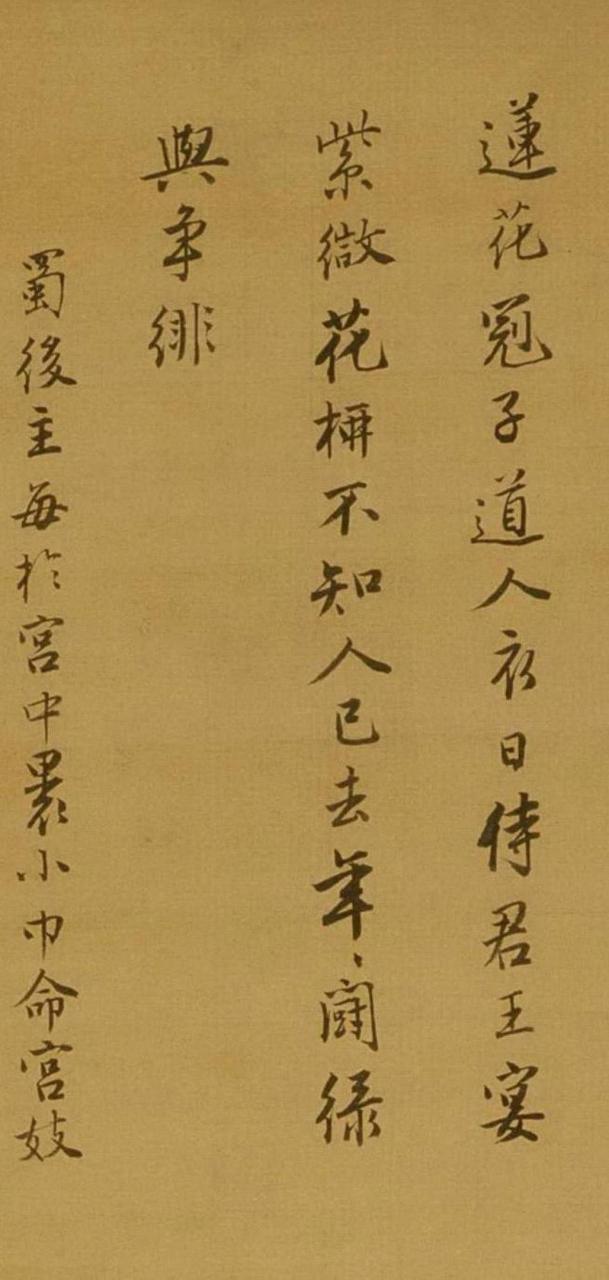 蓮花冠子道人衣日侍君王宴
紫微花柳不知人已去年〻鬪綠
與爭緋
蜀後主每於宮中裹小巾命宮妓